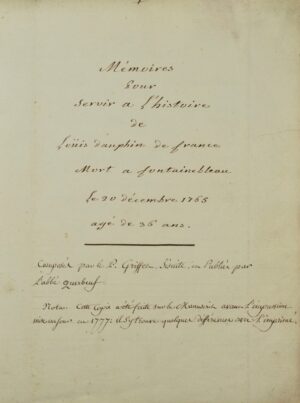 Mémoires
Pour
Servir a l'histoire
de
Loüis dauphin de france
Mort a fontainebleau
le 20 décembre 1765
agé de 36 ans.
Composés par le P. Griffet, Jésuite, et Publiés par
l'abbé Querbeuf.
Nota. Cette Copie a été faite sur le Manuscrit avant l'impression
en 1777. il s'y trouve quelques différences avec l'imprimé.